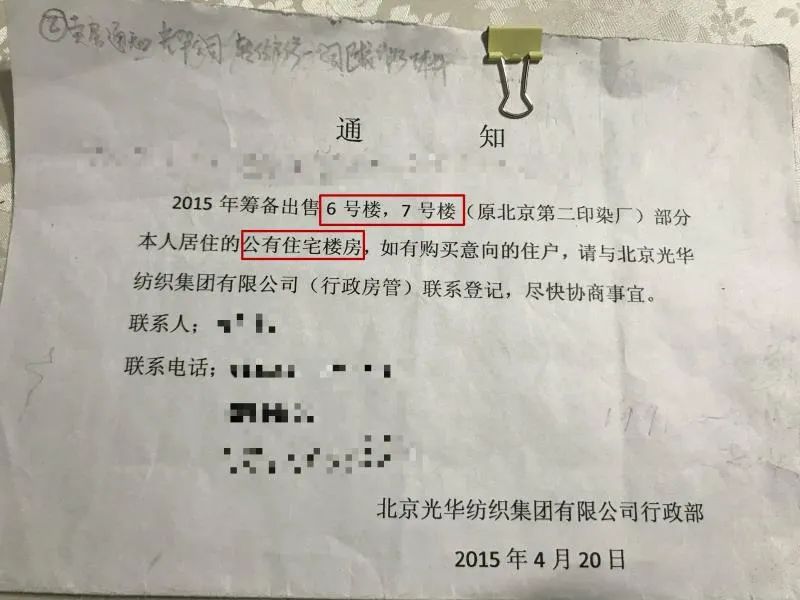 通 知
2015 年筹备出售 6 号楼，7 号楼（原北京第二印染厂）部分
本人居住的公有住宅楼房，如有购买意向的住户，请与北京光华
纺织集团有限公司（行政房管）联系登记，尽快协商事宜。
联系人；
联系电话；
北京光华纺织集团有限公司行政部
2015 年 4 月 20 日